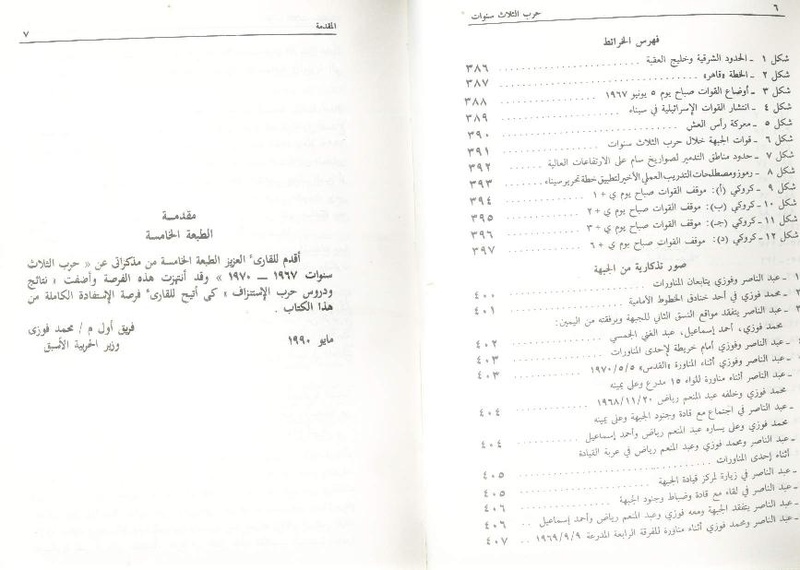 ٦ حرب الثلاث سنوات
فهرس الخرائط
شكل ١ ـ الحدود الشرقية وخليج العقبة ٣٨٦
شكل ٢ ـ الخطة «قاهر» ٣٨٧
شكل ٣ ـ أوضاع القوات صباح يوم ٥ يونيو ١٩٦٧ ٣٨٨
شكل ٤ ـ انتشار القوات الإسرائيلية في سيناء ٣٨٩
شكل ٥ ـ معركة رأس العش ٣٩٠
شكل ٦ ـ قوات الجبهة خلال حرب الثلاث سنوات ٣٩١
شكل ٧ ـ حدود مناطق التدمير لصواريخ سام على الارتفاعات العالية ٣٩٢
شكل ٨ ـ رموز ومصطلحات التدريب العملي الأخير لتطبيق خطة تحرير سيناء ٣٩٣
شكل ٩ ـ كروكي (أ): موقف القوات صباح يوم ي + ١ ٣٩٤
شكل ١٠ ـ كروكي (ب): موقف القوات صباح يوم ي + ٢ ٣٩٥
شكل ١١ ـ كروكي (جـ): موقف القوات صباح يوم ي + ٣ ٣٩٦
شكل ١٢ ـ كروكي (د): موقف القوات صباح يوم ي + ٦ ٣٩٧
صور تذكارية من الجبهة
١ ـ عبد الناصر وفوزي يتابعان المناورات ٤٠٠
٢ ـ محمد فوزي في أحد خنادق الخطوط الأمامية ٤٠١
٣ ـ عبد الناصر يتفقد مواقع النسق الثاني للجبهة وبرفقته من اليمين:
محمد فوزي، أحمد إسماعيل، عبد الغني الجمسي ٤٠٢
ـ عبد الناصر وفوزي أمام خريطة لإحدى المناورات ٤٠٣
ـ عبد الناصر وفوزي أثناء المناورة «القدس» ١٩٧٠/٥/٥ ٤٠٣
ـ عبد الناصر أثناء مناورة للواء ١٥ مدرع وعلى يمينه
محمد فوزي وخلفه عبد المنعم رياض ١٩٦٨/١١/٢٠ ٤٠٤
ـ عبد الناصر في اجتماع مع قادة وجنود الجبهة وعلى يمينه
محمد فوزي وعلى يساره عبد المنعم رياض وأحمد إسماعيل ٤٠٤
ـ عبد الناصر ومحمد فوزي وعبد المنعم رياض في عربة القيادة
أثناء إحدى المناورات ٤٠٥
ـ عبد الناصر في زيارة لمركز قيادة الجبهة ٤٠٥
ـ عبد الناصر في لقاء مع قادة وضباط وجنود الجبهة ٤٠٦
ـ عبد الناصر يتفقد الجبهة ومعه فوزي وعبد المنعم رياض وأحمد إسماعيل ٤٠٦
ـ عبد الناصر ومحمد فوزي أثناء مناورة للفرقة الرابعة المدرعة ١٩٦٩/٩/٩ ٤٠٧
المقدمة ٧
مقدمـــة
الطبعة الخامسة
أقدم للقارىء العزيز الطبعة الخامسة من مذكراتى عن « حرب الثلاث
سنوات ١٩٦٧ — ١٩٧٠ » وقد أنتهزت هذه الفرصة وأضفت « نتائج
ودروس حرب الإستنزاف » كى أتيح للقارىء فرصة الإستفادة الكاملة من
هذا الكتاب .
فريق أول م / محمد فوزى
مايو ١٩٩٠ وزير الحربية الأسبق